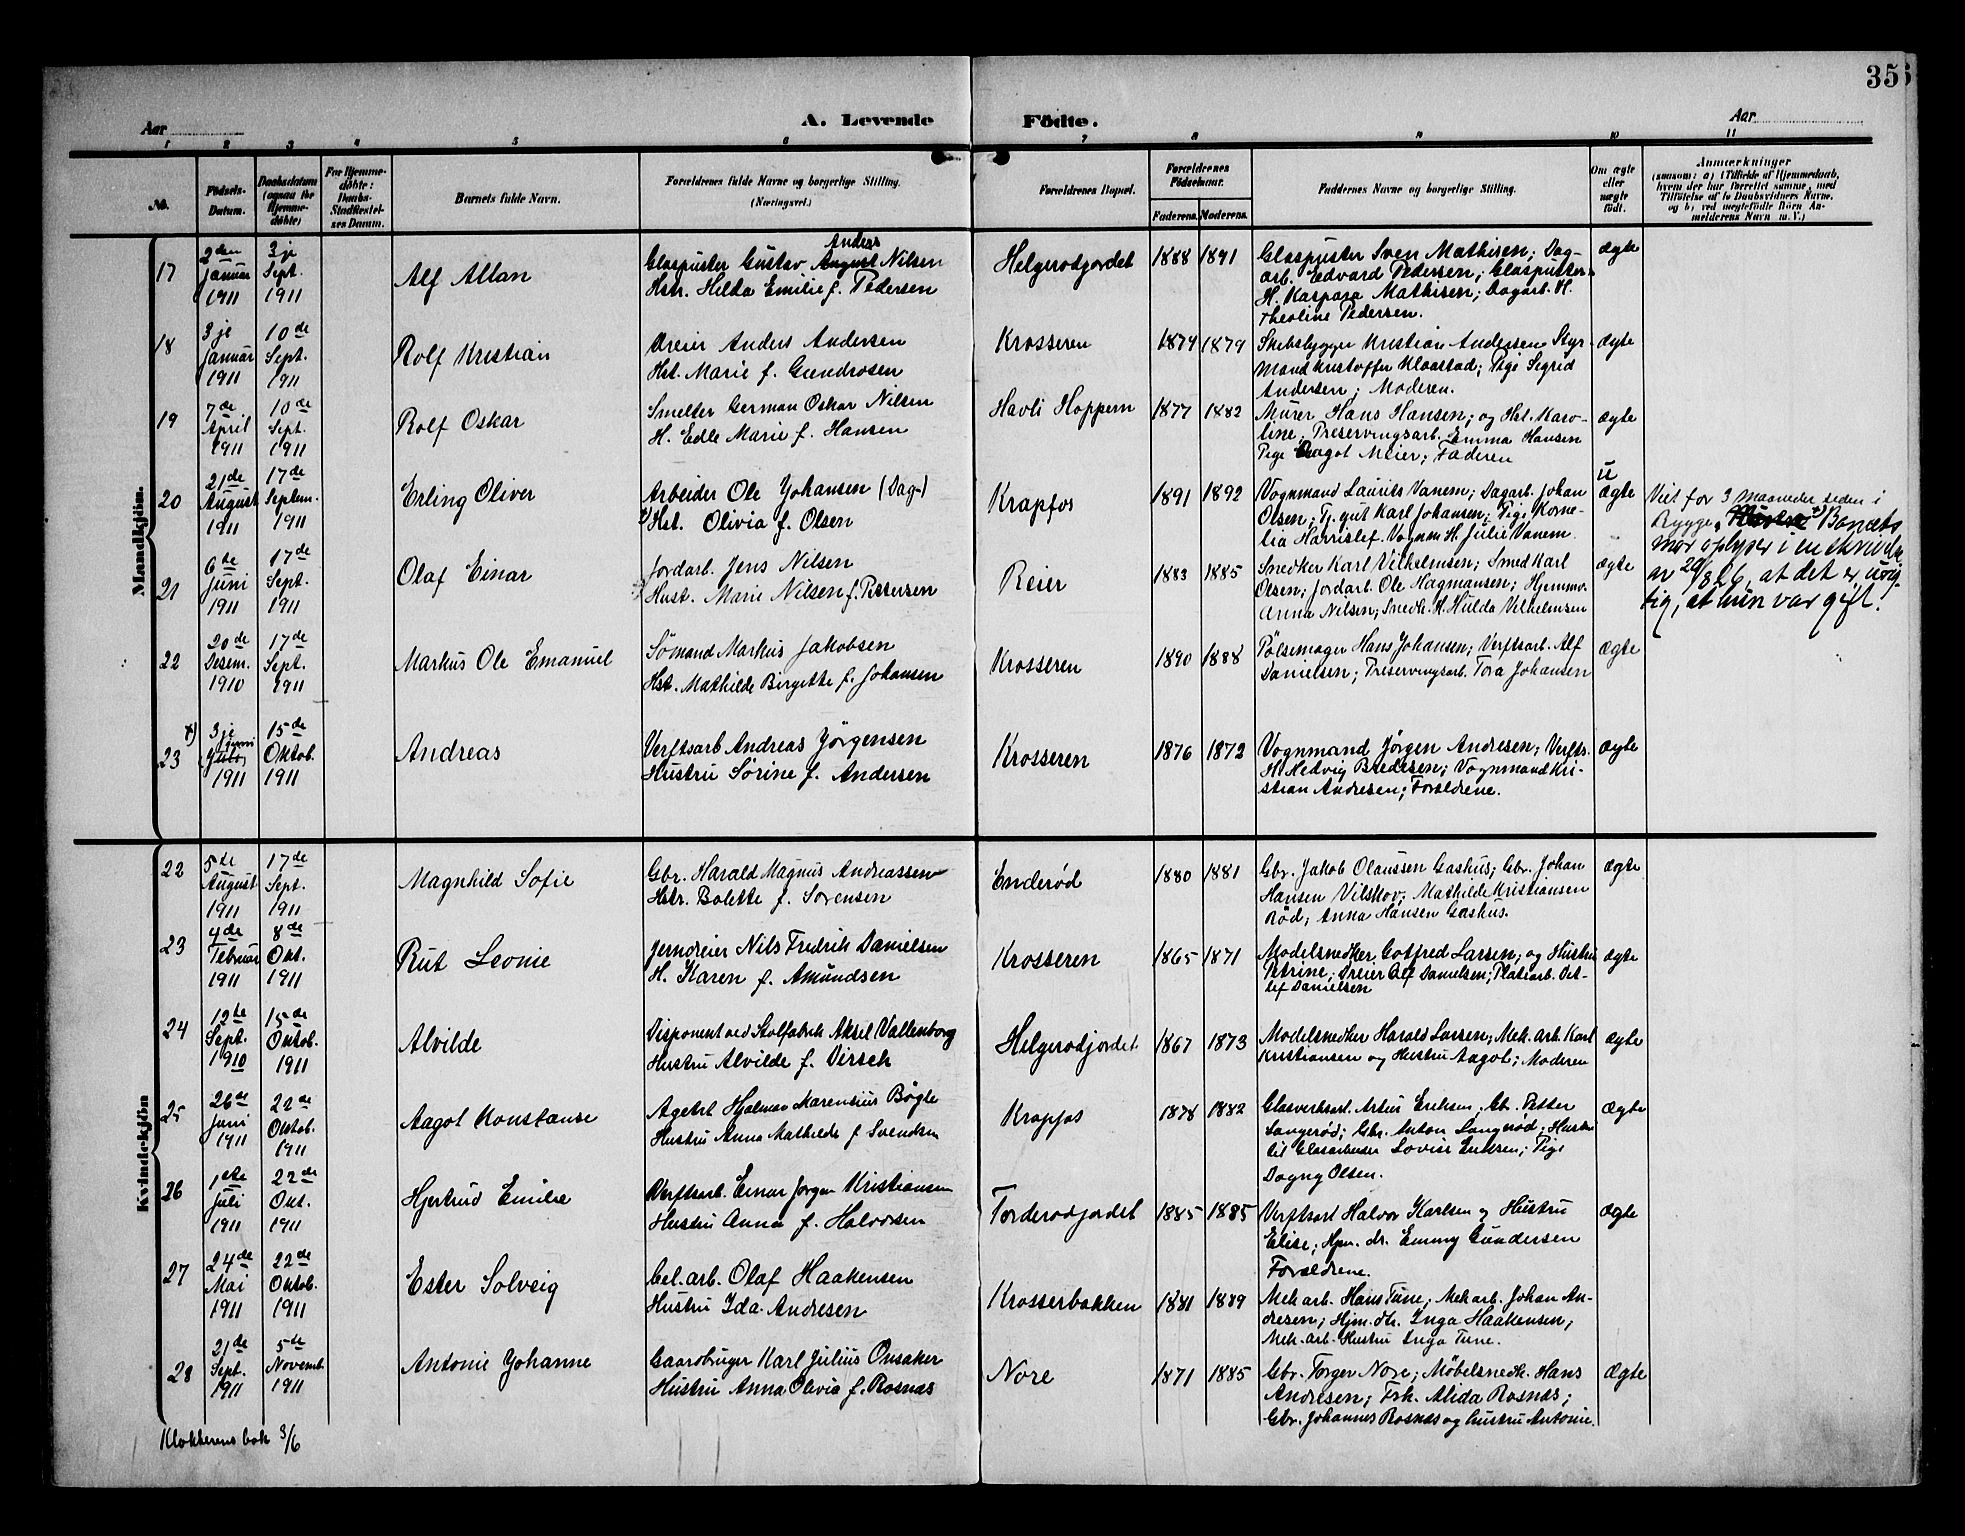 356
Aar
A. Levende Födte.
Aar
1 2 3 4 5 6 7 8 9 10 11
No.
Födsels-Datum.
Daabsdatum (ogsaa for Hjemme-döbte)
For Hjemme-döbte: Daabs-Stadfæstel-ses Datum.
Barnets fulde Navn.
Forældrenes fulde Navne og borgerlige Stilling. (Næringsvei.)
Forældrenes Bopæl.
Forældrenes Födselsaar.
Faderens. Moderens.
Faddernes Navne og borgerlige Stilling.
Om ægte eller uægte födt.
Anmærkninger
(saasom: a) i Tilfælde af Hjemmedaab,
hvem der har forrettet samme, med
Tilföielse af to Daabsvidners Navne,
og b) ved uægtefödte Börn An-
melderens Navn m. V.)
Mandkjön.
17
2den Januar 1911
3je Sept. 1911
Alf Allan
Glaspuster Gustav August Anders Nilsen
Hstr. Hilda Emilie f. Pedersen
Helgerödjordet
1888 1891
Glaspuster Sven Mathisen; Dag-
arb. Edvard Pedersen; Glaspuster
H. Kaspara Mathisen; Dagarb. H.
Theoline Pedersen.
ægte
18
3je Januar 1911
10de Sept. 1911
Rolf Kristian
Dreier Anders Andersen
Hst. Marie f. Gundrosen
Krosseren
1874 1879
Skibsbygger Kristian Andersen Styr
mand Kristoffer Klaastad; Pige Sigrid
Andersen; Moderen.
ægte
19
7de April 1911
10de Sept. 1911
Rolf Oskar
Smelter German Oskar Nilsen
H. Edle Marie f. Hansen
Havli Hoppern
1877 1882
Murer Hans Hansen; og Hst. Karo-
line; Preservingsarb. Emma Hansen
Pige Aagot Meier; Faderen
ægte
20
21de August 1911
17de Septem. 1911
Erling Oliver
Arbeider Ole Johansen (Dag-)
x) Hst. Olivia f. Olsen
Krapfos
1891 1892
Vognmand Laurits Vanem; Dagarb. Johan
Olsen; Tj. gut Karl Johansen; Pige Korne-
lia Harrislef. Vognm H. Julie Vanem
u
ægte
Viet for 3 maaneder siden i
Rygge. x) Barnets
mor oplyser i en skrivelse
av 29/8 26, at det er urig-
tig, at hun var gift.
21
6te Juni 1911
17de Sept. 1911
Olaf Einar
Jordarb. Jens Nilsen
Hust. Marie Nilsen f. Petersen
Reier
1883 1885
Snedker Karl Vilhelmsen; Smed Karl
Olsen; Jordarb. Ole Hagmansen; Hjemmv.
Anna Nilsen; Snedk. H. Hulda Vilhelmsen
ægte
22
20de Desem. 1910
17de Sept. 1911
Markus Ole Emanuel
Sömand Markus Jakobsen
Hst. Mathilde Birgitte f. Johansen
Krosseren
1890 1888
Pölsemager Hans Johansen; Verftsarb. Alf
Danielsen; Preservingsarb. Tora Johansen
ægte
x)
23
3je Juni 1911
15de Oktob. 1911
Andreas
Verftsarb Andreas Jörgensen
Hustru Sörine f. Andersen
Krosseren
1876 1872
Vognmand Jörgen Andresen; Verfts.
H. Hedvig Bredesen; Vognmand Kri-
stian Andresen; Forældrene.
ægte
Kvindekjön
22
5de August 1911
17de Sept. 1911
Magnhild Sofie
Gbr. Harald Magnus Andreassen
Hstr. Bolette f. Sorensen
Enderöd
1880 1881
Gbr. Jakob Olaussen Gashus; Gbr. Johan
Hansen Vilskov; Mathilde Kristiansen
Röd; Anna Hansen Gashus.
ægte
23
4de Februar 1911
8de Okt. 1911
Rut Leonie
Jerndreier Nils Fredrik Danielsen
H. Karen f. Amundsen
Krosseren
1865 1871
Modelsnedker Gotfred Larsen; og Hustru
Petrine; Dreier Alf Danielsen; Pladearb. Det-
lef Danielsen
ægte
24
12te Sept. 1910
15de Oktob. 1911
Alvilde
Disponent ved Skofabrik Aksel Vallenborg
Hustru Alvilde f. Dirsch
Helgerodjordet
1867 1873
Modelsnedker Harald Larsen; Mek. arb. Karl
Kristiansen og Hustru Aagot; Moderen
ægte
25
26de Juni 1911
22de Oktob. 1911
Aagot Konstanse
Agent Hjalmar Marensius Bögle
Hustru Anna Mathilde f Svendsen
Krapfos
1878 1882
Glasverksarb. Artur Eriksen; Gb. Petter
Langeröd; Gbr. Anton Langeröd; Hustru
til Glasarbeider Lovise Eriksen; Pige
Dagny Olsen.
Ægte
26
1ste Juli 1911
22de Okt. 1911
Hjertrud Emilie
Verftsarb. Einar Jorgen Kristiansen
Hustru Anna f. Halvorsen
Torderodjordet
1885 1885
Verftsarb Halvor Karlsen og Hustru
Elise; Hjm. dr. Emmy Gundersen
Forældrene.
ægte
27
24de Mai 1911
22de Oktob. 1911
Ester Solveig
Cel. arb. Olaf Haakensen
Hustru Ida Andresen
Krosserbakken
1881 1889
Mek arb. Hans Tune; Mek arb. Johan An-
dresen; Hjm. dtr. Inga Haakensen;
Mek. arb. Hustru Inga Tune.
28
21de Sept. 1911
5te Novemb. 1911
Antonie Johanne
Gaardbruger Karl Julius Onsaker
Hustru Anna Olivia f. Rosnæs
Nore
1871 1885
Gbr. Torger Nore; Möbelsnedk. Hans
Andresen; Frk. Alida Rosnæs;
Gbr. Johannes Rosnæs og hustru Antonie.
Ægte
Klokkerens bok 3/6